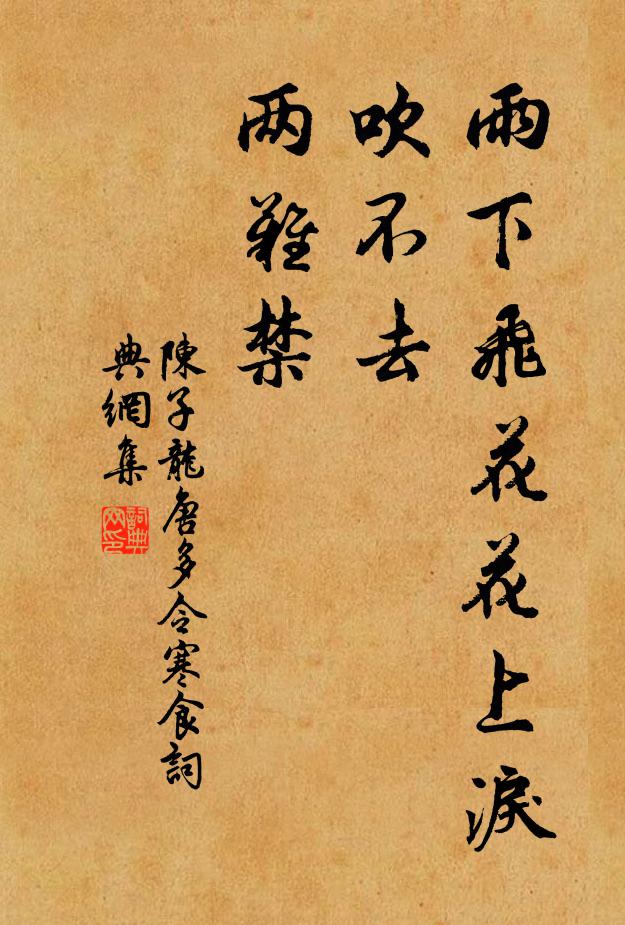 雨下飛花花上淚
吹不去
两難禁
陳子龍唐多令寒食詞
典網集
詞典網印